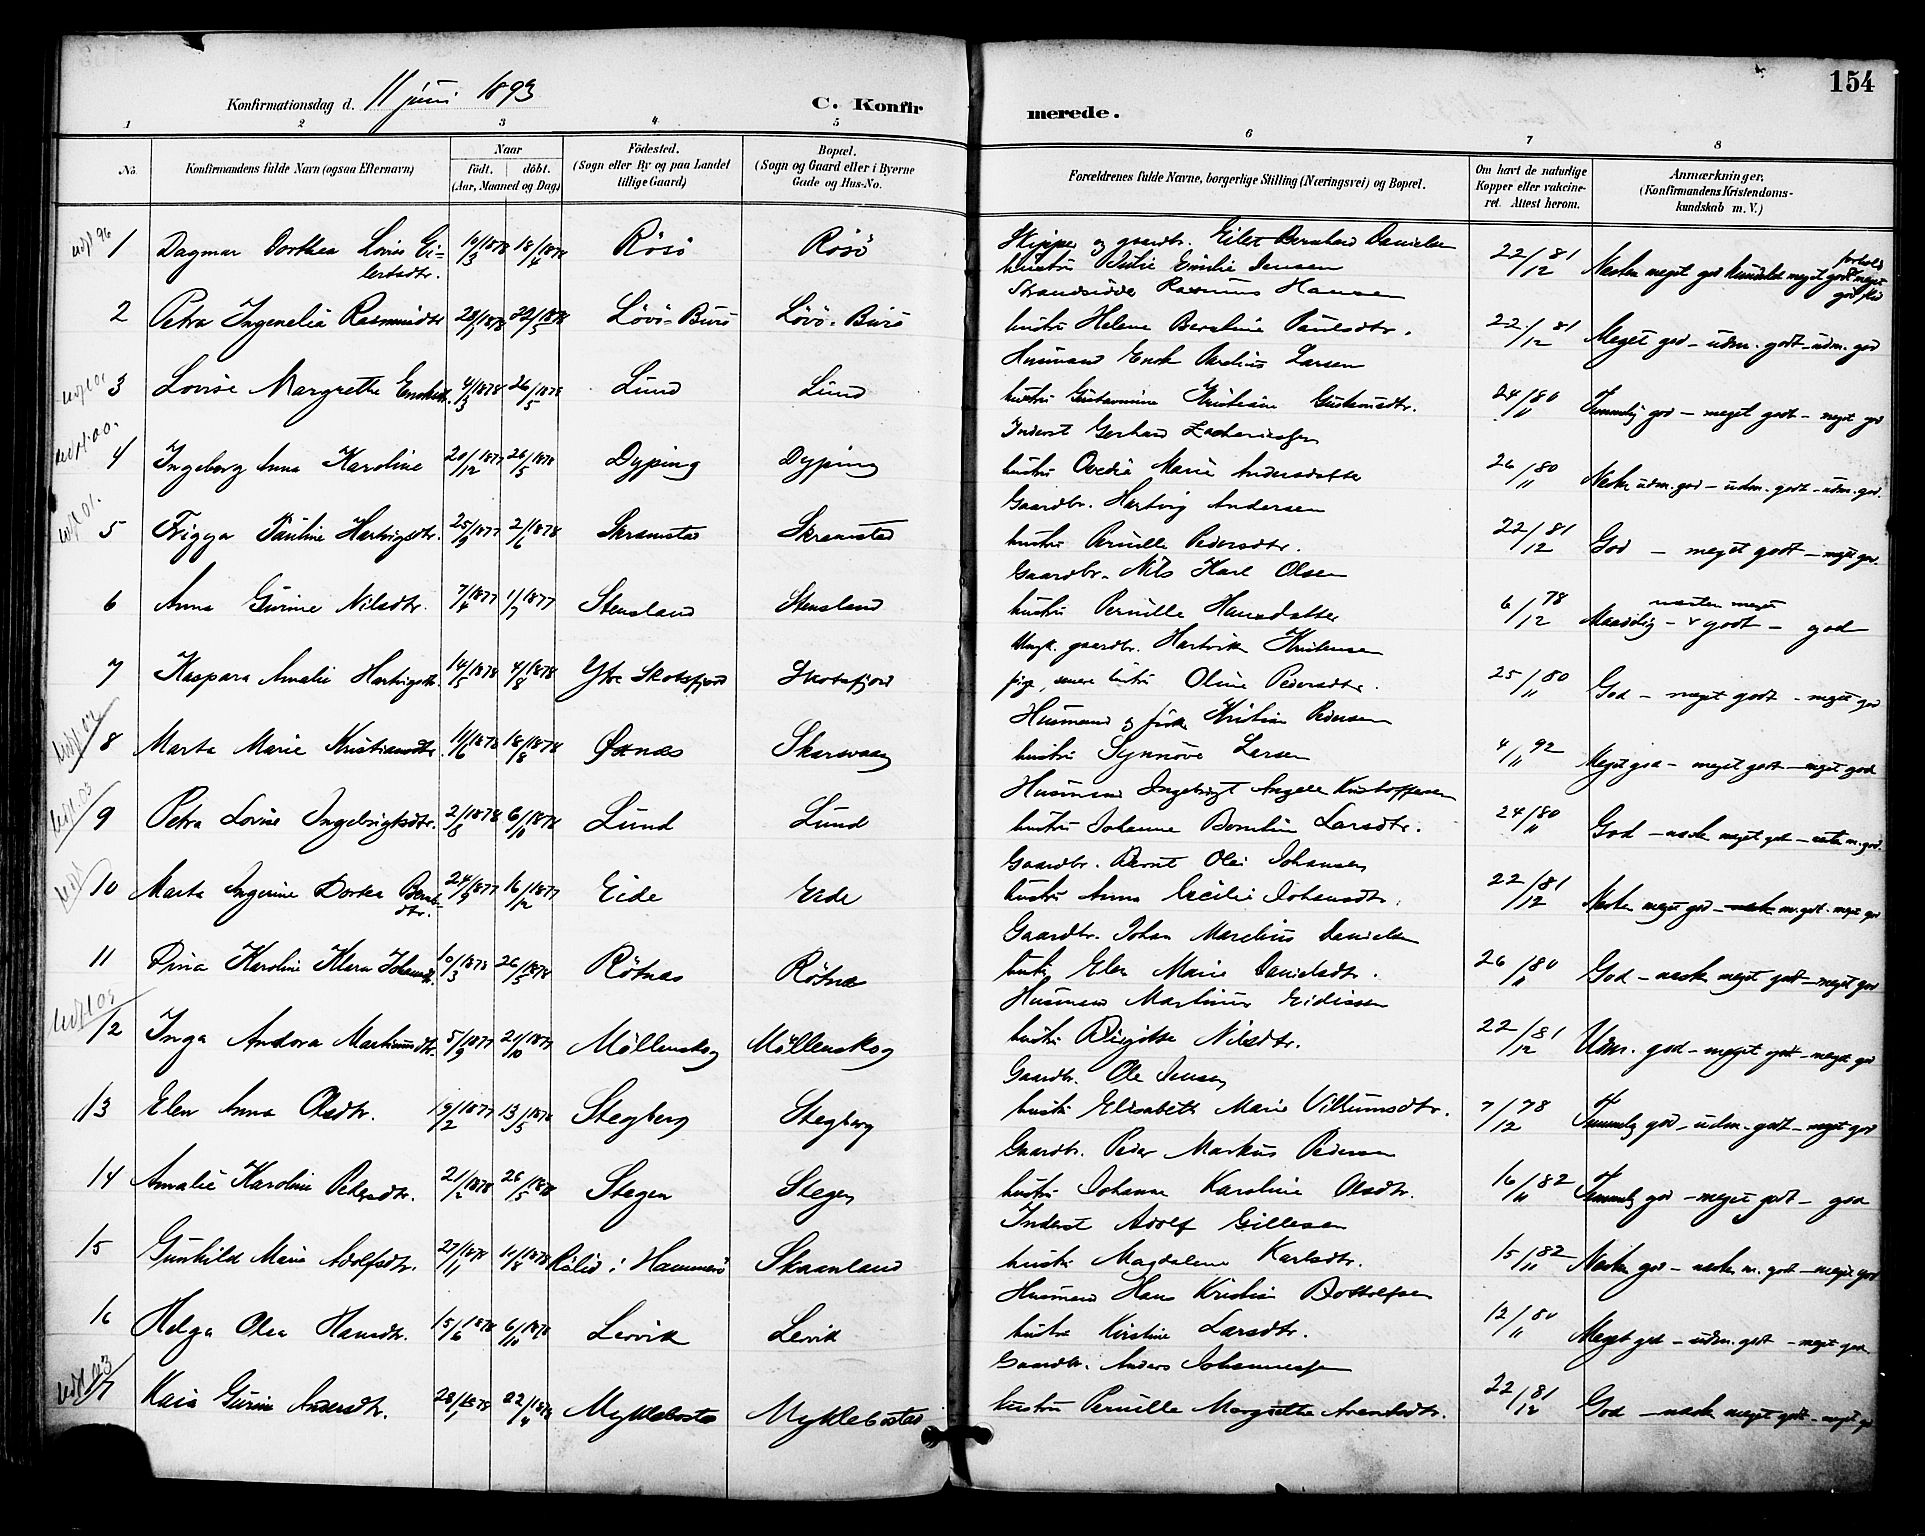 154
Konfirmationsdag d. 11 juni 1893
C. Konfirmerede.
1 2 3 4 5 6 7 8
No.
Konfirmandens fulde Navn (ogsaa Efternavn)
Naar födt. döbt. (Aar, Maaned og Dag)
Födested. (Sogn eller By og paa Landet tillige Gaard)
Bopæl. (Sogn og Gaard eller i Byerne Gade og Hus-No.
Forældrenes fulde Navne, borgerlige Stilling (Næringsvei) og Bopæl.
Om havt de naturlige Kopper eller vakcineret. Attest herom.
Anmærkninger, (Konfirmandens Kristendomskundskab m. V.)
udfl 96
1 Dagmar Dorthea Lovise Eilertsdtr. 10/3 1878 18/4 1878 Rösö Rösö
Skipper og gaardbr. Eilert Bernhard Danielsen
hustru Emilie Jensen 22/12 81 Næsten meget god
2 Petra Ingenelia Rasmusdtr 22/5 1878 Lövö-Burö Lövö-Burö
Strandsidder Rasmus Hansen
hustru Helene Berntine Paulsdtr. 22/12 81 Meget god - udm. godt - udm. god
3 Lovise Margrethe 4/3 1878 26/5 1878 Lund Lund
Husmand Enok Larsen
hustru Kristiane 24/11 80 Temmelig god - meget godt - meget god
4 Ingeborg Anna Karoline 20/12 1877 26/5 1878 Dyping Dyping
Inderst Gerhard Zachariassen
hustru Marie Andersdatter 26/11 80 Næsten udm. god - udm. godt - udm. god.
udfl 01.
5 Frigga Pauline Hartvigsdtr. 25/9 1877 2/6 1878 Skramstad Skramstad
Gaardbr. Hartvig Andersen
hustru Pernille Pedersdtr. 22/12 81 God - meget godt - meget god.
6 Anna Gurine Nilsdtr. 7/4 1877 1/7 1877 Stensland Stensland
Gaardbr. Nils Karl Olsen
hustru Pernille Hansdatter 6/12 78 Maadelig - næsten meget godt - god
7 Kaspara Amalie Hartvigsdtr. 14/5 1878 4/8 1878 Ytre Skotsfjord Skotsfjord
Ungk. gaardbr. Hartvik Kristensen
pige, senere hustru Oline Pedersdtr. 25/11 80 God - meget godt - meget god
8 Marta Marie Kristiansdtr. 11/6 1878 18/8 1878 Öxnæs Skarsvaag
Husmand og fisker Kristian Pedersen
hustru Synnöve Larsen 4/11 92 Meget god - meget godt - meget god
udfl. 03
9 Petra Lovise Ingebrigtsdtr. 2/8 1878 6/11 1878 Lund Lund
Husmand Ingebrigt Angell Kristoffersen
hustru Johanna Larsdtr. 24/11 80 God - næsten meget godt - næsten m. god.
udfl
10 Marta Ingerine Dortea Berntsdtr. 24/9 1877 16/12 1877 Eide Eide
Gaardbr. Bernt Olai Johansen
hustru Anna Cecilie Johansdtr. 22/12 81 Næsten meget god - m. godt - meget god
11 Dina Karoline Klara Johansdtr. 10/3 1878 26/5 1878 Rötnæs Rötnæs
Gaardbr. Johan Marelius Danielsen
hustru Elen Marie Danielsdtr. 26/11 80 God - næsten meget godt - meget god
12 Inga Andora Martinusdtr. 5/9 1877 21/10 1877 Möllenskog Möllenskog
Husmand Martinus Eidissen
hustru Birgitte Nilsdtr. 22/12 81 Udm. god - meget godt - meget god
13 Elen Anna Olsdtr. 19/12 1877 13/5 1878 Stegberg Stegberg
Gaardbr. Ole Jensen
hustru Elisabeth Marie Villumsdtr. 7/12 78 Temmelig god - udm. godt - meget god
14 Amalie Karoline Pedersdtr. 21/2 1878 26/5 1878 Stegen Stegen
Gaardbr. Peder Markus Pedersen
hustru Johanna Karoline Olsdtr. 16/11 82 Temmelig god - meget godt - god
15 Gunhild Marie Adolfsdtr. 27/1 1878 Skaanland
Inderst Adolf Gillesen
hustru Magdalene Karlsdtr. 15/11 82 Næsten god - næsten m. godt - meget god
16 Helga Olea Hansdtr. 15/6 1878 6/10 1878 Lervik Lervik
Husmand Hans Kristian Bottolfsen
hustru Kirstine Larsdtr. 12/11 80 Meget god - udm. godt - meget god
udfl. 03
17 Kaia Gurine Andersdtr. 28/1 1878 22/4 1878 Myklebostad Myklebostad
Gaardbr. Anders Johannessen
hustru Pernille Margrethe Arentsdtr. 22/12 81 God - næsten meget godt - meget god